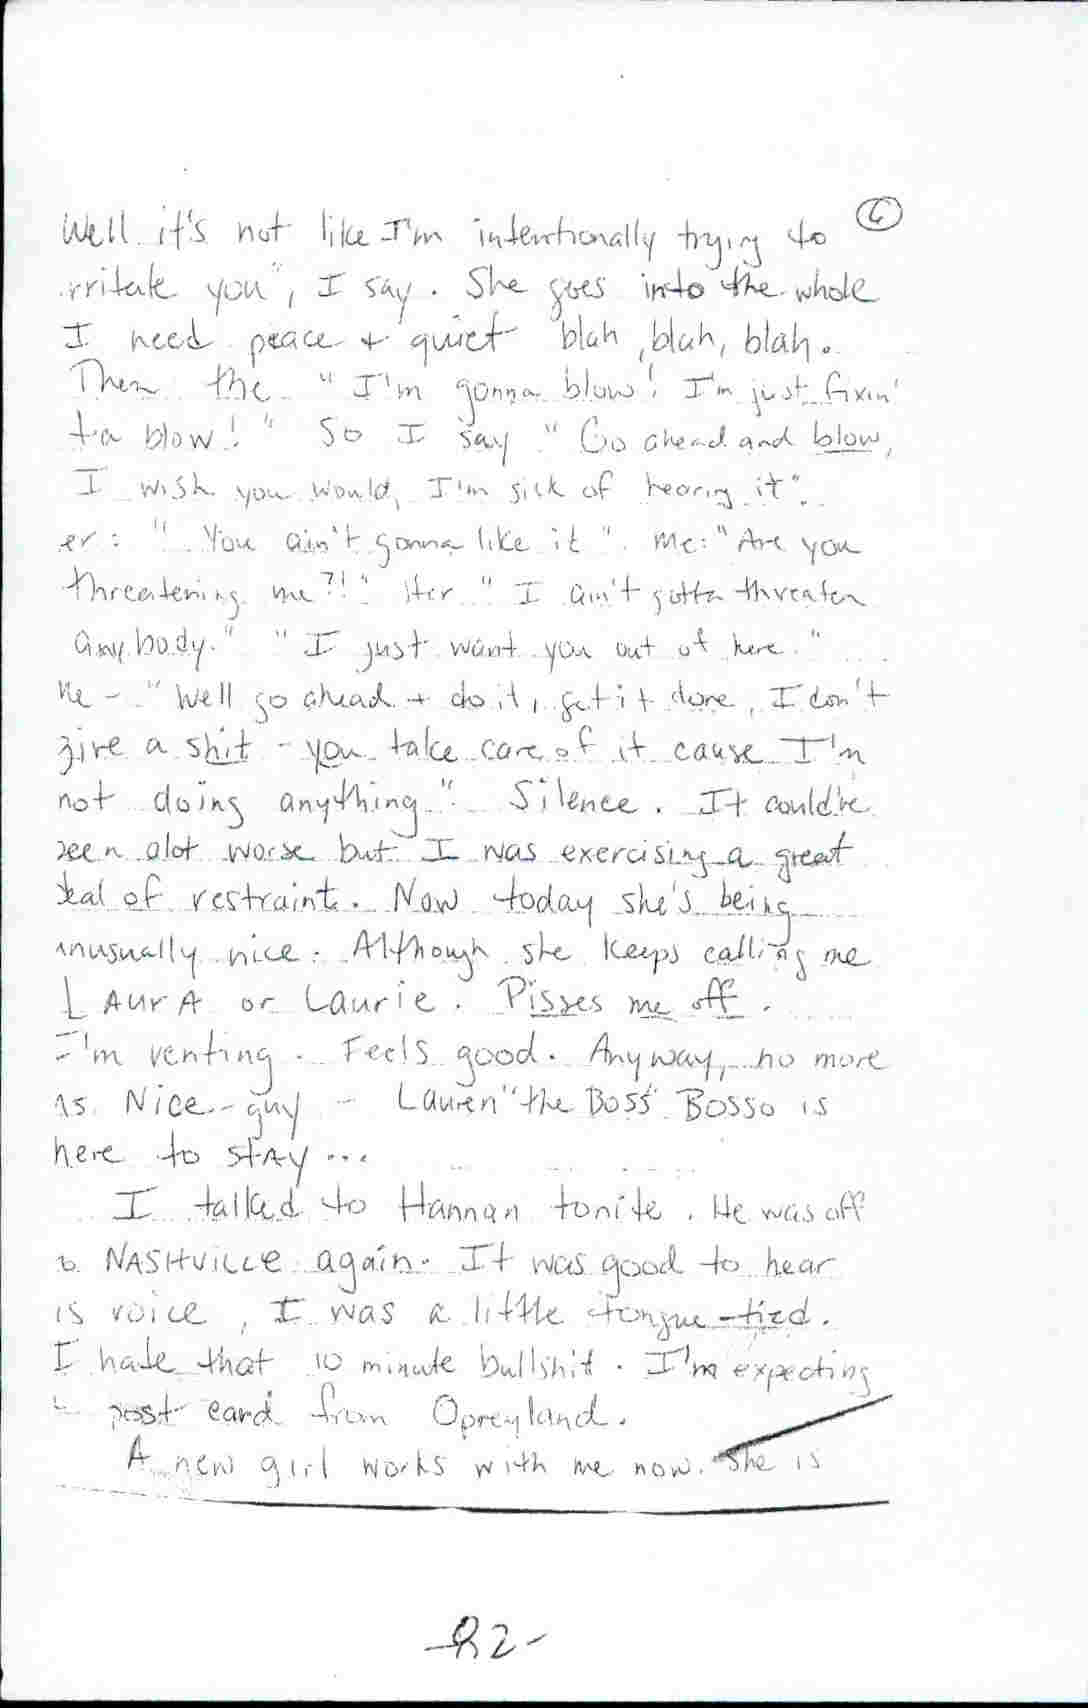 6
Well it's not like I'm intentionally trying to
rritate you", I say. She goes into the whole
I need peace + quiet blah, blah, blah.
Then the "I'm gonna blow! I'm just fixin'
ta blow!" So I say "Go ahead and blow,
I wish you would, I'm sick of hearing it".
er: "You ain't gonna like it". Me: "Are you
threatening me?!" Her "I ain't gotta threaten
anybody." "I just want you out of here."
Me - "Well go ahead + do it, get it done, I don't
give a shit - you take care of it cause I'm
not doing anything". Silence. It could've
been alot worse but I was exercising a great
deal of restraint. Now today she's being
unusually nice. Although she keeps calling me
LAURA or Laurie. Pisses me off.
I'm venting. Feels good. Anyway, no more
Ms. Nice-guy - Lauren "the Boss" Bosso is
here to STAY...
I talked to Hannan tonite. He was off
to NASHVILLE again. It was good to hear
is voice, I was a little tongue-tied.
I hate that 10 minute bullshit. I'm expecting
post card from Opreyland.
A new girl works with me now. She is
-82-